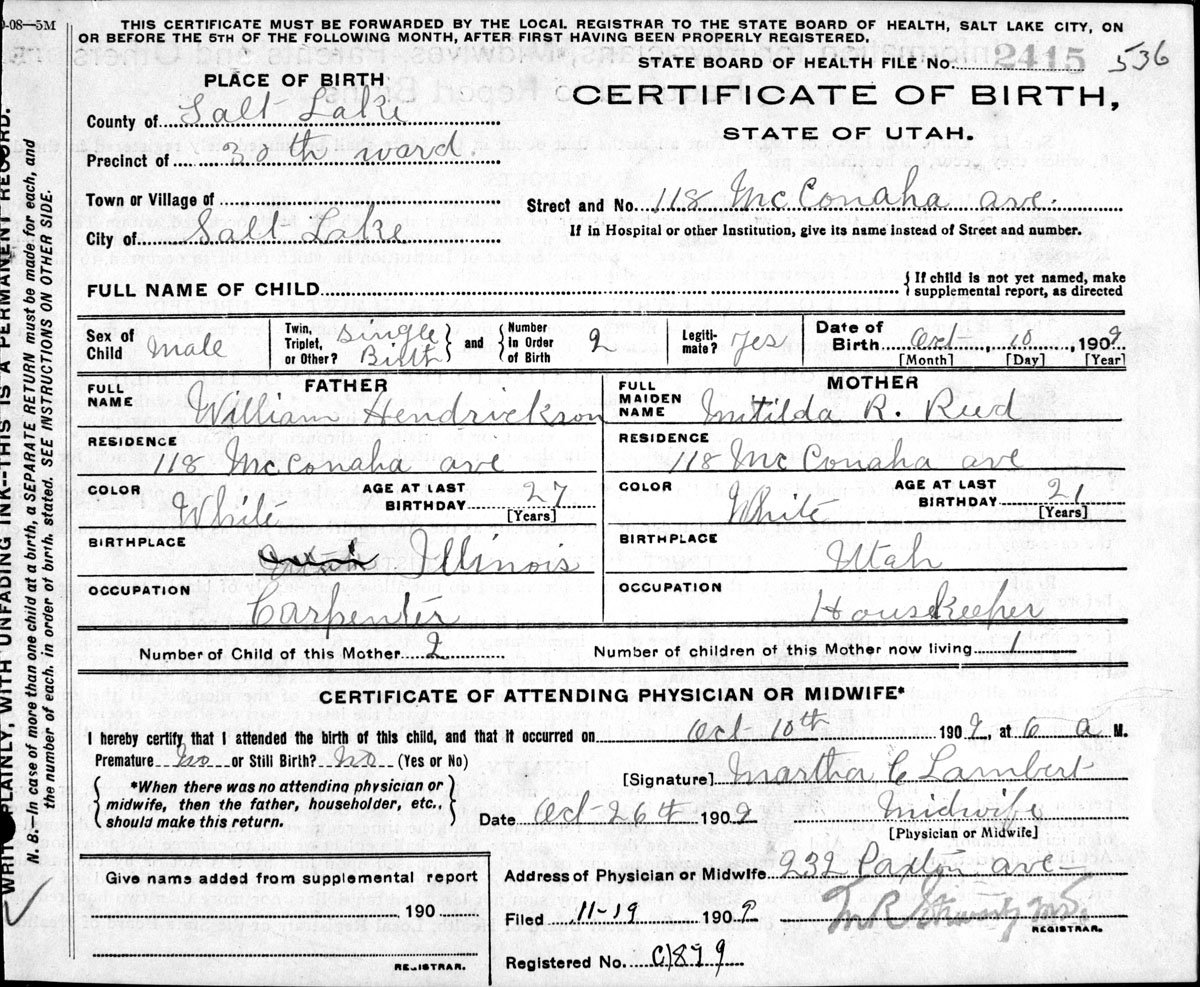 0-08—5M
THIS CERTIFICATE MUST BE FORWARDED BY THE LOCAL REGISTRAR TO THE STATE BOARD OF HEALTH, SALT LAKE CITY, ON
OR BEFORE THE 5TH OF THE FOLLOWING MONTH, AFTER FIRST HAVING BEEN PROPERLY REGISTERED.
STATE BOARD OF HEALTH FILE No. 2415 536
PLACE OF BIRTH
CERTIFICATE OF BIRTH,
STATE OF UTAH.
County of Salt Lake
Precinct of 30th ward
Town or Village of
Street and No. 118 McConaha ave.
City of Salt Lake
If in Hospital or other Institution, give its name instead of Street and number.
FULL NAME OF CHILD
{ If child is not yet named, make
supplemental report, as directed
Sex of Child Male
Twin, Triplet, or Other? Single Birth } and { Number In Order of Birth 2
Legitimate? Yes
Date of Birth Oct 10, 1909
[Month] [Day] [Year]
FATHER MOTHER
FULL NAME William Hendrickson FULL MAIDEN NAME Matilda R. Reed
RESIDENCE 118 McConaha ave RESIDENCE 118 McConaha ave
COLOR White AGE AT LAST BIRTHDAY 27 [Years] COLOR White AGE AT LAST BIRTHDAY 21 [Years]
BIRTHPLACE Illinois BIRTHPLACE Utah
OCCUPATION Carpenter OCCUPATION Housekeeper
Number of Child of this Mother 2 Number of children of this Mother now living 1
CERTIFICATE OF ATTENDING PHYSICIAN OR MIDWIFE*
I hereby certify that I attended the birth of this child, and that it occurred on Oct 10th 1909, at 6 a M.
Premature No or Still Birth? No (Yes or No)
{ *When there was no attending physician or
midwife, then the father, householder, etc.,
should make this return. }
[Signature] Martha C Lambert
Date Oct 26th 1909 Midwife
[Physician or Midwife]
Give name added from supplemental report
190
REGISTRAR.
Address of Physician or Midwife 232 Paxton ave
Filed 11-19 1909 REGISTRAR.
Registered No.
WRITE PLAINLY, WITH UNFADING INK--THIS IS A PERMANENT RECORD.
N. B.—In case of more than one child at a birth, a SEPARATE RETURN must be made for each, and
the number of each, in order of birth, stated. SEE INSTRUCTIONS ON OTHER SIDE.